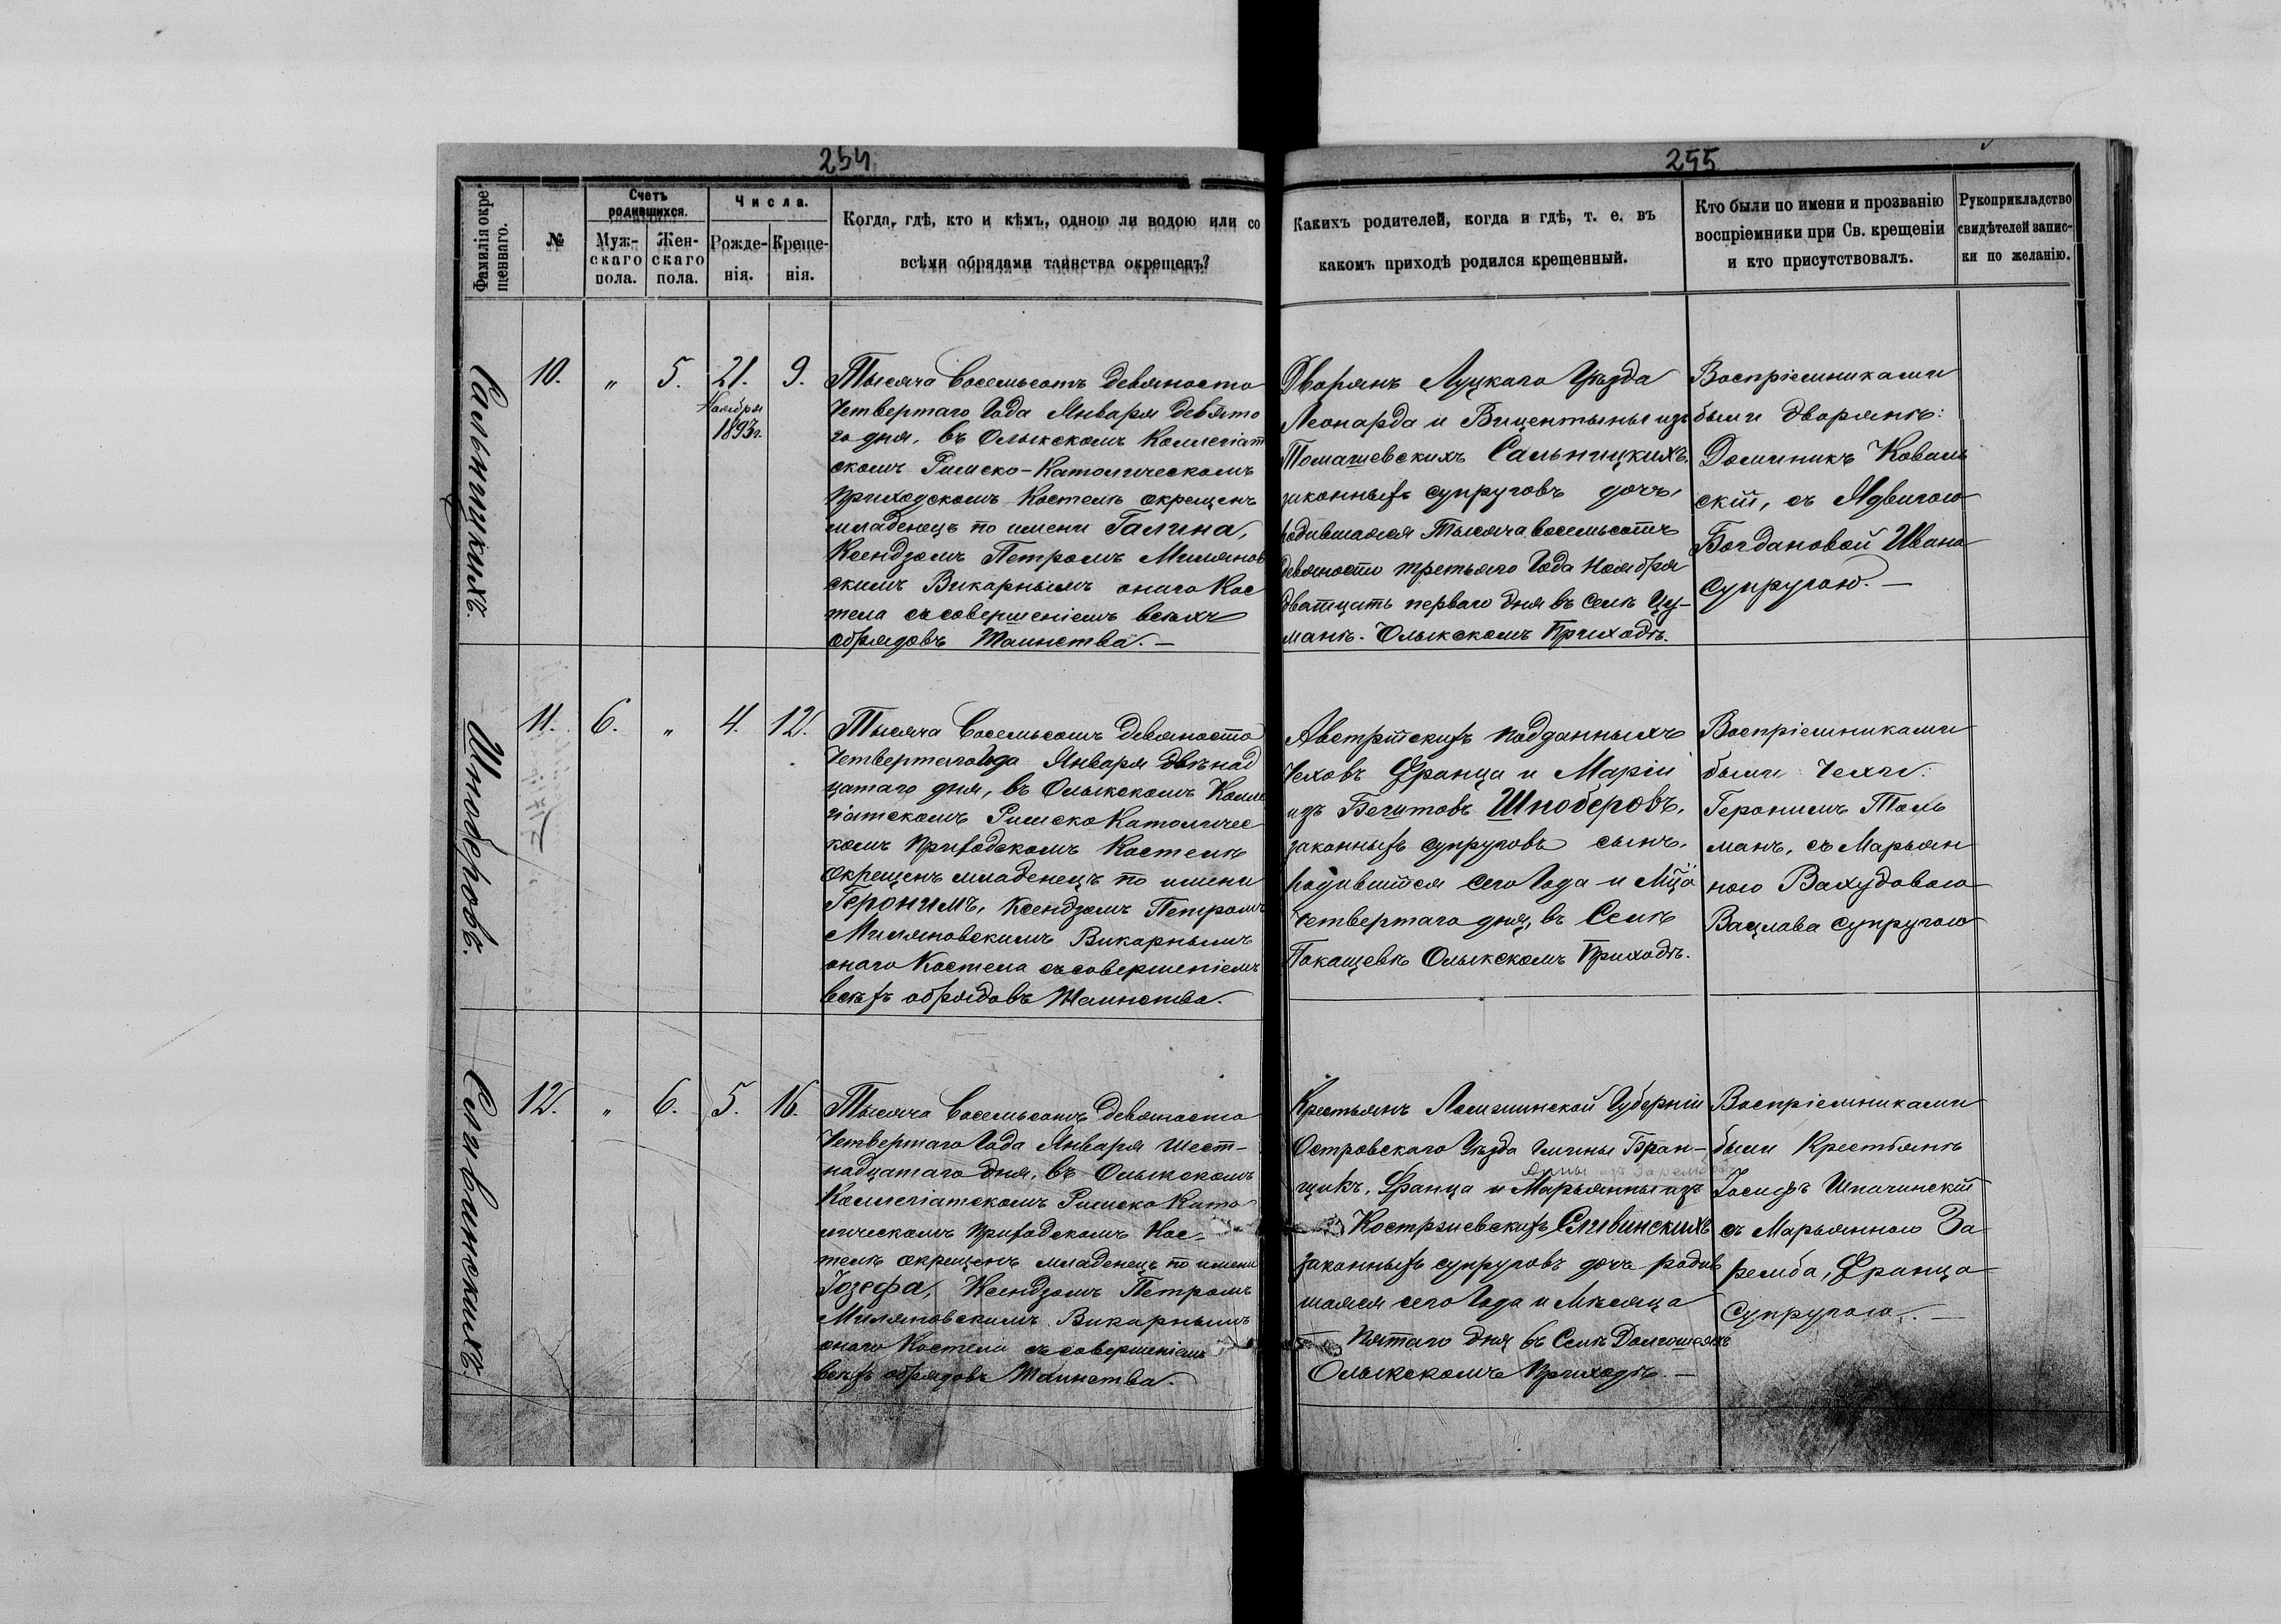 254
Фамилія окре-
щеннаго.
№
Счетъ
родившихся.
Муж-
скаго
пола.
Жен-
скаго
пола.
Числа.
Рожде-
нія.
Креще-
нія.
Когда, гдѣ, кто и кѣмъ, одною ли водою или со
всѣми обрядами таинства окрещенъ?
Сальницкихъ.
10.
"
5.
21.
Ноября
1893г.
9.
Тысяча восемьсотъ девяносто
Четвертаго Года Января девято
го дня, въ Олыкскомъ Коллегіат
скомъ Римско-Католическомъ
Приходскомъ Костелѣ окрещенъ
младенецъ по имени Галина,
Ксендзомъ Петромъ Милянов
скимъ Викарнымъ онаго Кос
тела съ совершеніемъ всѣхъ
обрядовъ Таинства. —
Шноберовъ.
11.
6.
"
4.
12.
Тысяча Восемьсотъ девяносто
Четвертаго Года Января двѣнад
цатаго дня, въ Олыкскомъ Колле
гіатскомъ Римско Католичес
комъ Приходскомъ Костелѣ
окрещенъ младенецъ по имени
Геронимъ, Ксендзомъ Петромъ
Миляновскимъ Викарнымъ
онаго Костела съ совершеніемъ
всѣхъ обрядовъ Таинства.
Сливинскихъ.
12.
"
6.
5.
16.
Тысяча Восемьсотъ девяносто
Четвертаго Года Января Шест-
надцатаго дня, въ Олыкскомъ
Коллегіатскомъ Римско Като
лическомъ Приходскомъ Кос-
телѣ окрещенъ младенецъ по имени
Іозефа, Ксендзомъ Петромъ
Миляновскимъ Викарнымъ
онаго Костела съ совершеніемъ
всѣхъ обрядовъ Таинства.
255
Какихъ родителей, когда и гдѣ, т. е. въ
какомъ приходѣ родился крещенный.
Кто были по имени и прозванію
воспріемники при Св. крещеніи
и кто присутствовалъ.
Рукоприкладство
свидѣтелей запис-
ки по желанію.
Дворянъ Луцкаго Уѣзда
Леонарда и Вицентыны изъ
Томашевскихъ Сальницкихъ,
законныхъ супруговъ дочь,
родившаяся Тысяча восемьсотъ
девяносто третьяго Года Ноября
двадцать перваго дня въ Селѣ Цу-
манѣ. Олыкскомъ Приходѣ.
Воспріемниками
были дворянѣ:
Доминикъ Коваль
скій, съ Ядвигою
Богдановой Ивана
супругою. —
Австрійскихъ подданныхъ
Чеховъ Франца и Маріи
изъ Бегитовъ Шноберовъ,
законныхъ супруговъ сынъ,
родившійся сего Года и Мца
четвертаго дня, въ Селѣ
Покащевѣ Олыкскомъ Приходѣ.
Воспріемниками
были Чехи:
Геронимъ Толь
манъ, съ Марьян
ною Вахудовою
Вацлава супругою
Крестьянъ Ломжинской Губерніи
Островскаго Уѣзда Гмины Бран-
щикъ, Франца и Марьянны изъ
Анны изъ Зарембовъ
Костржевскихъ Сливинскихъ
законныхъ супруговъ дочь родив
шаяся сего Года и Мѣсяца
Пятаго дня въ Селѣ Долгошеяхъ
Олыкскомъ Приходѣ. —
Воспріемниками
были Крестьянѣ
Іосифъ Шпачинскій
съ Марьянною За
ремба, Франца
супругою. —